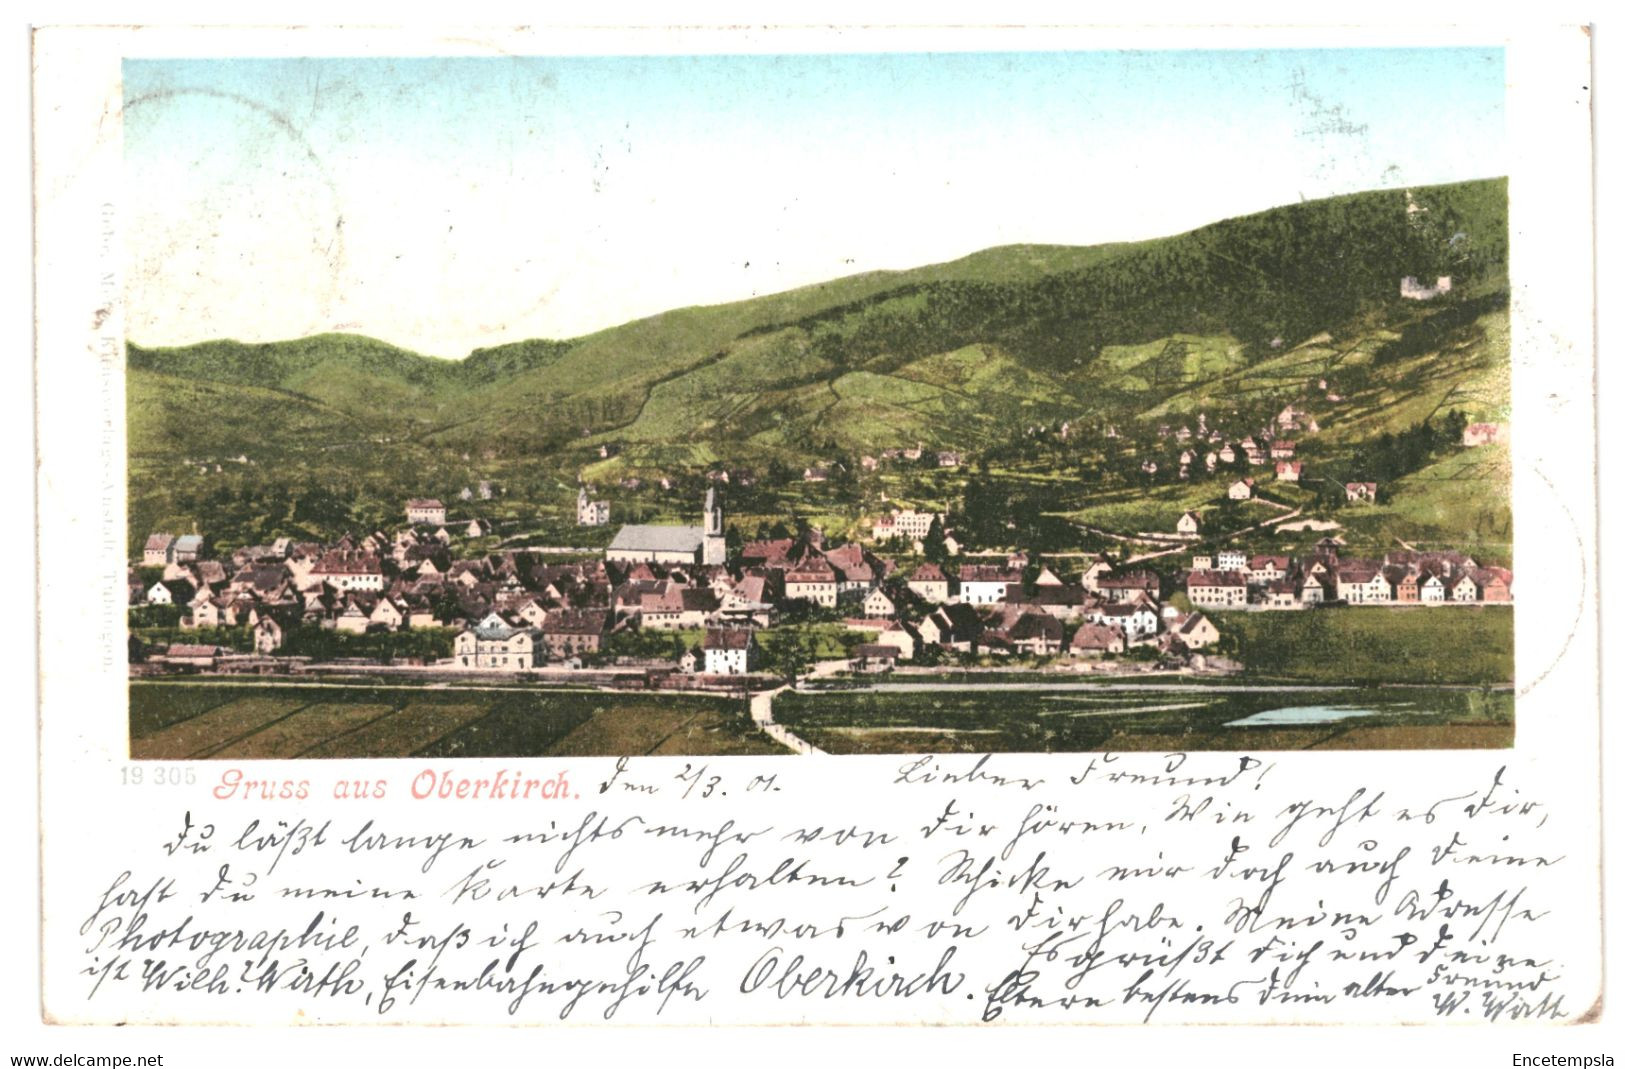 Gebr. Metz, Kunstverlags-Anstalt, Tübingen.
19 305 Gruss aus Oberkirch. den 2/3. 01. Lieber Freund!
Du läßt lange nichts mehr von Dir hören. Wie geht es Dir,
hast Du meine Karte erhalten? Schicke mir doch auch Deine
Photographie, daß ich auch etwas von Dir habe. Meine Adresse
ist Wilh. Wirth, Eisenbahngehilfe Oberkirch. Es grüßt Dich und Deine
Eltern bestens Dein alter Freund
W. Wirth
www.delcampe.net
Encetempsla